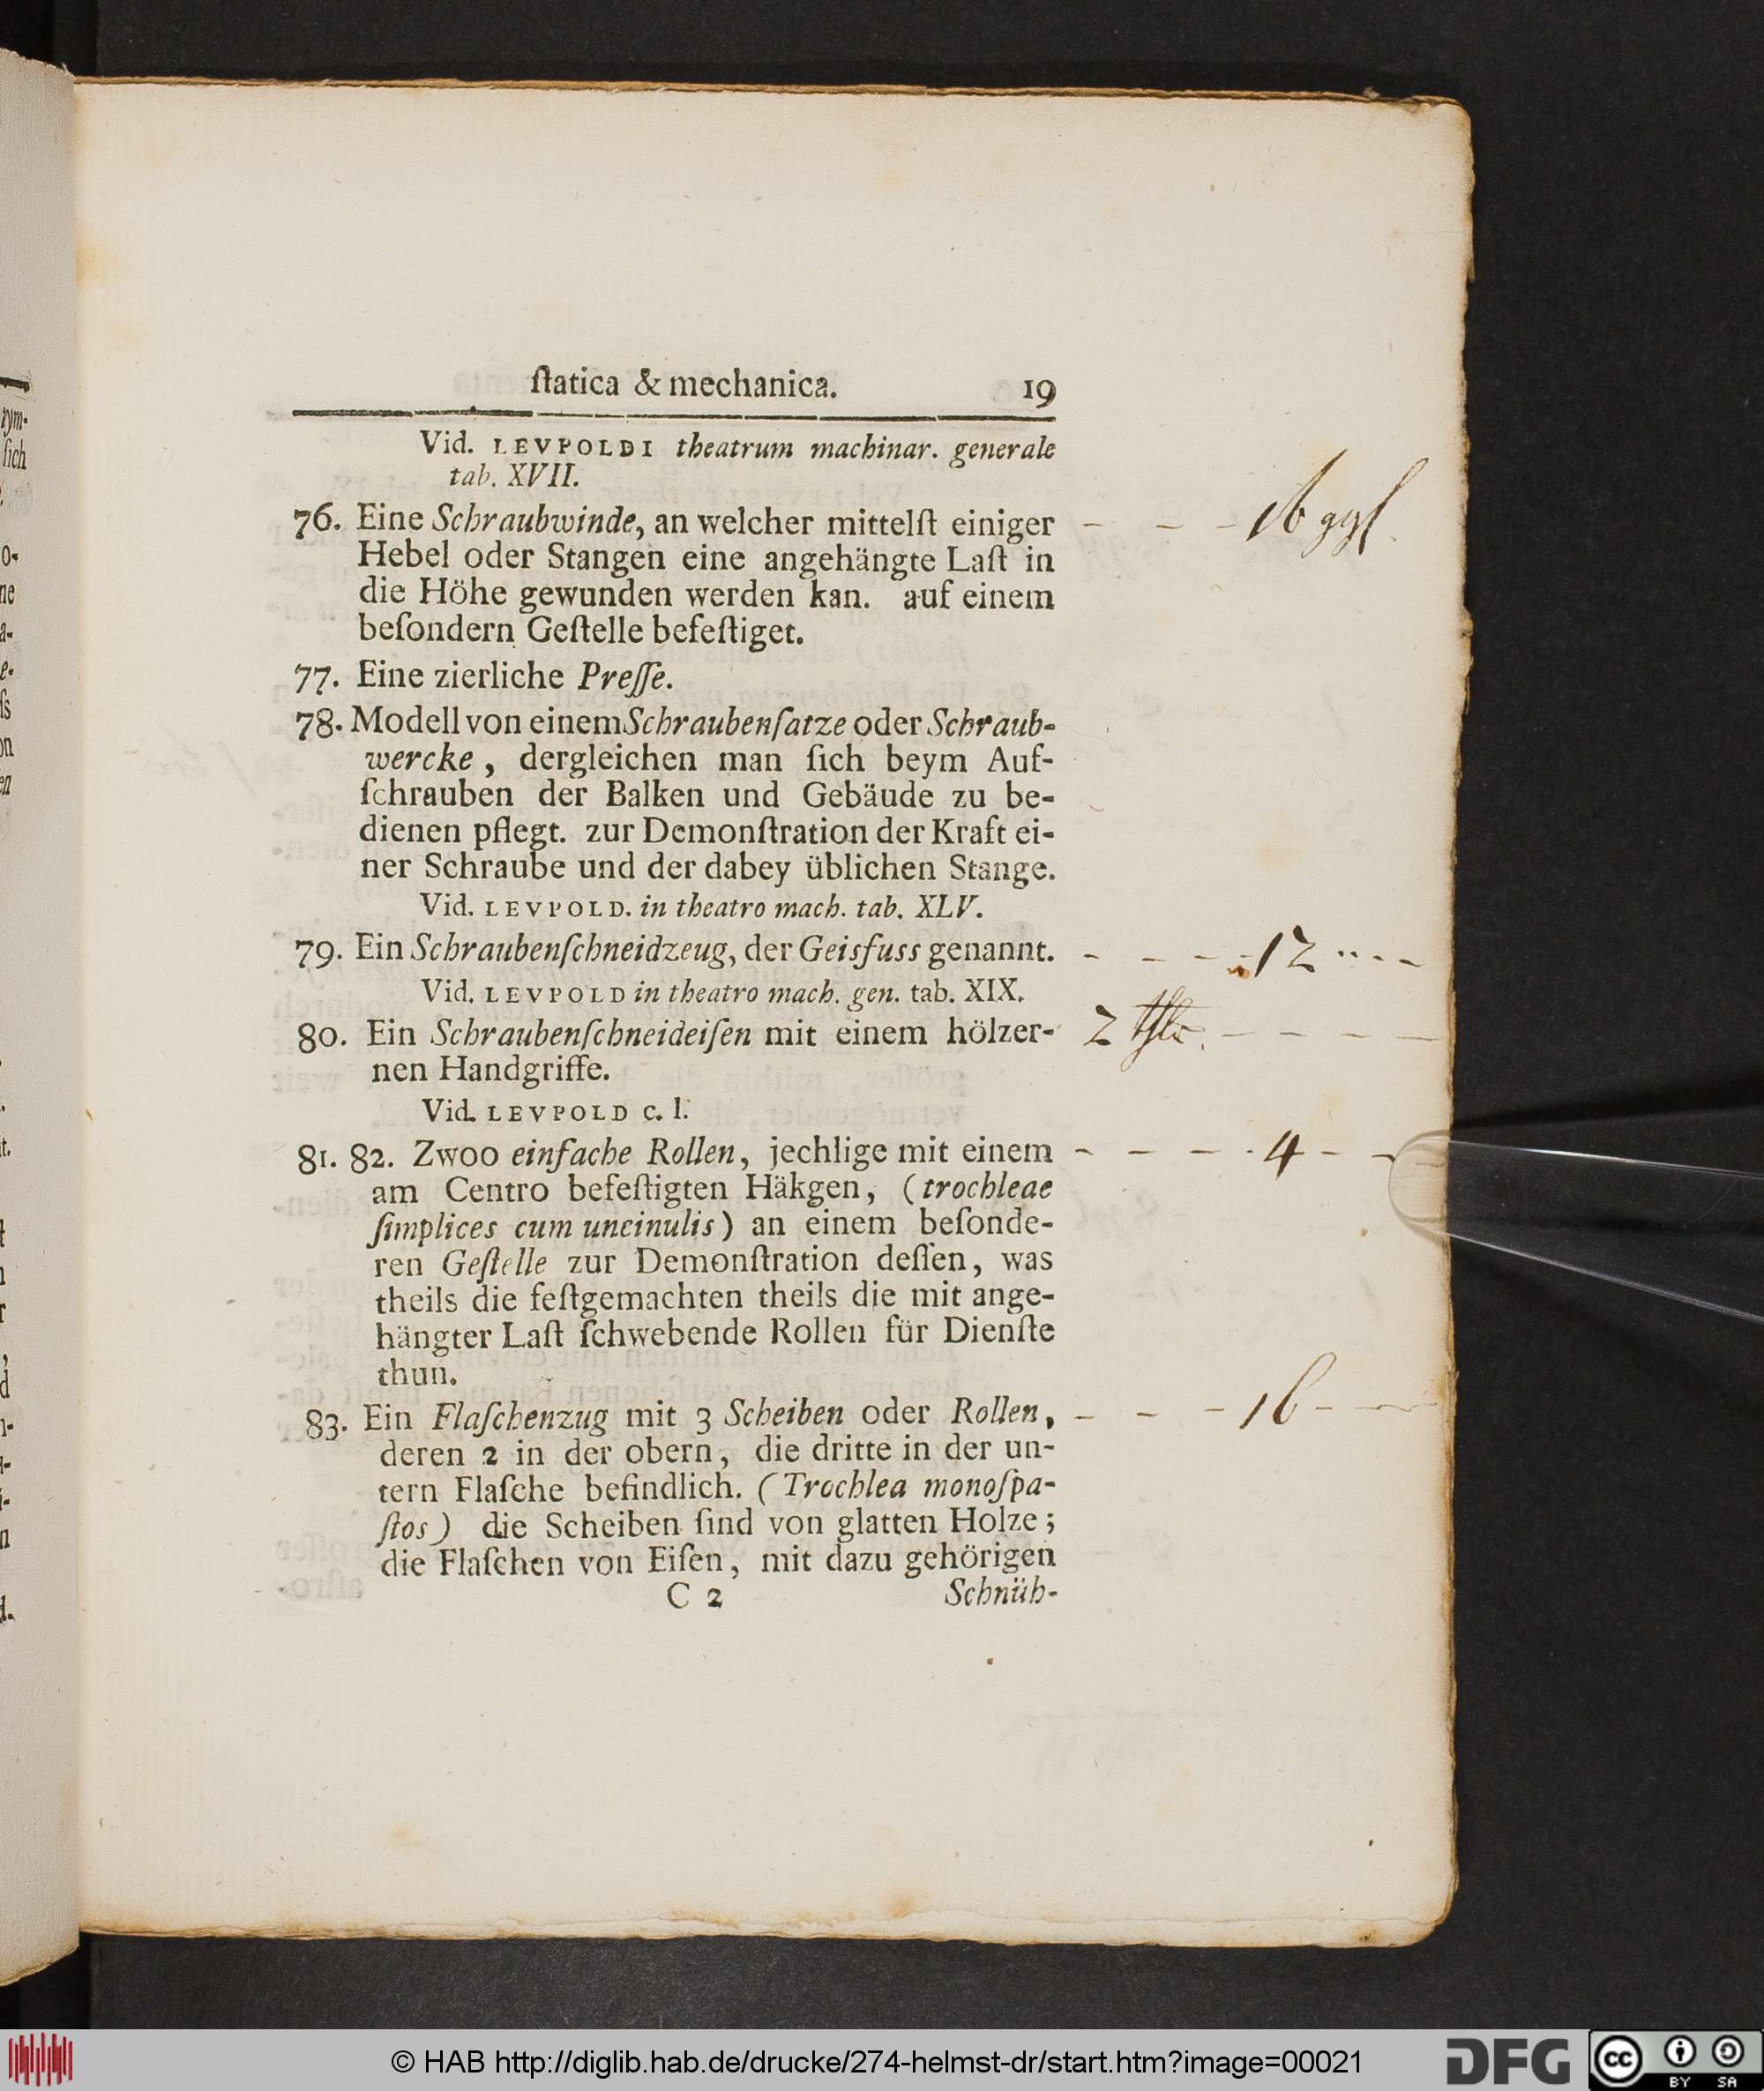 ſtatica & mechanica. 19
Vid. LEVPOLDI theatrum machinar. generale
tab. XVII.
76. Eine Schraubwinde, an welcher mittelſt einiger - - - 16 ggl.
Hebel oder Stangen eine angehängte Laſt in
die Höhe gewunden werden kan. auf einem
beſondern Geſtelle befeſtiget.
77. Eine zierliche Preſſe.
78. Modell von einem Schraubenſatze oder Schraub-
wercke, dergleichen man ſich beym Auf-
ſchrauben der Balken und Gebäude zu be-
dienen pflegt. zur Demonſtration der Kraft ei-
ner Schraube und der dabey üblichen Stange.
Vid. LEVPOLD. in theatro mach. tab. XLV.
79. Ein Schraubenſchneidzeug, der Geisfuss genannt. - - - - 12 - - - -
Vid. LEVPOLD in theatro mach. gen. tab. XIX.
80. Ein Schraubenſchneideiſen mit einem hölzer- 2 thlr. - - - - -
nen Handgriffe.
Vid. LEVPOLD c. l.
81. 82. Zwoo einfache Rollen, jechlige mit einem - - - - 4 - -
am Centro befeſtigten Häkgen, (trochleae
ſimplices cum uncinulis) an einem beſonde-
ren Geſtelle zur Demonſtration deſſen, was
theils die feſtgemachten theils die mit ange-
hängter Laſt ſchwebende Rollen für Dienſte
thun.
83. Ein Flaſchenzug mit 3 Scheiben oder Rollen, - - - 16 - -
deren 2 in der obern, die dritte in der un-
tern Flaſche befindlich. (Trochlea monoſpa-
ſtos) die Scheiben ſind von glatten Holze;
die Flaſchen von Eiſen, mit dazu gehörigen
C 2 Schnüh-
© HAB http://diglib.hab.de/drucke/274-helmst-dr/start.htm?image=00021
DFG
cc BY SA